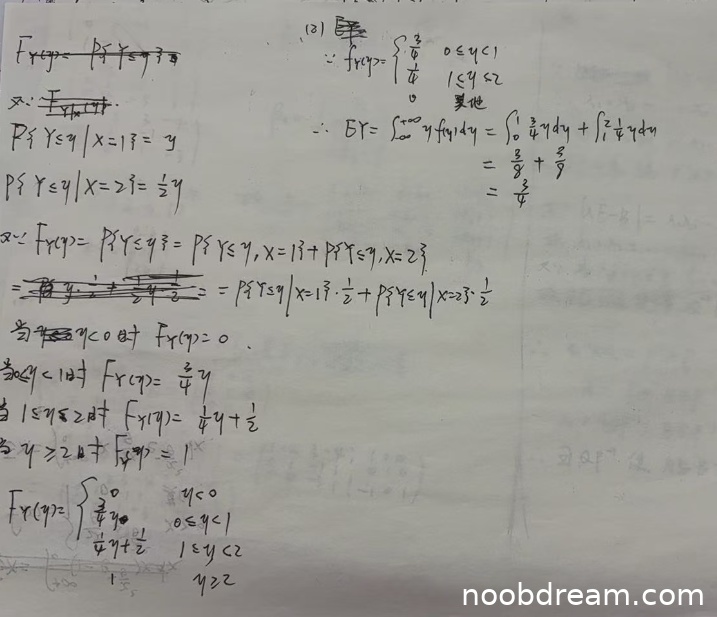 F_Y(y) = P{Y≤y}
又∵ F_{Y|X}(y)
P{Y≤y|X=1} = y
P{Y≤y|X=2} = 1/2 y
又∵ F_Y(y) = P{Y≤y} = P{Y≤y, X=1} + P{Y≤y, X=2}
= = P{Y≤y|X=1}·1/2 + P{Y≤y|X=2}·1/2
当 y<0时 F_Y(y)=0.
当0≤y<1时 F_Y(y) = 3/4 y
当 1≤y≤2时 F_Y(y) = 1/4 y + 1/2
当 y≥2时 F_Y(y) = 1
F_Y(y) = { 0 y<0
3/4 y 0≤y<1
1/4 y + 1/2 1≤y<2
1 y≥2
(2) EY
∵ f_Y(y) = { 3/4 0≤y<1
1/4 1≤y≤2
0 其他
∴ EY = ∫_{-∞}^{+∞} y f(y) dy = ∫_0^1 3/4 y dy + ∫_1^2 1/4 y dy
= 3/8 + 3/8
= 3/4
noobdream.com